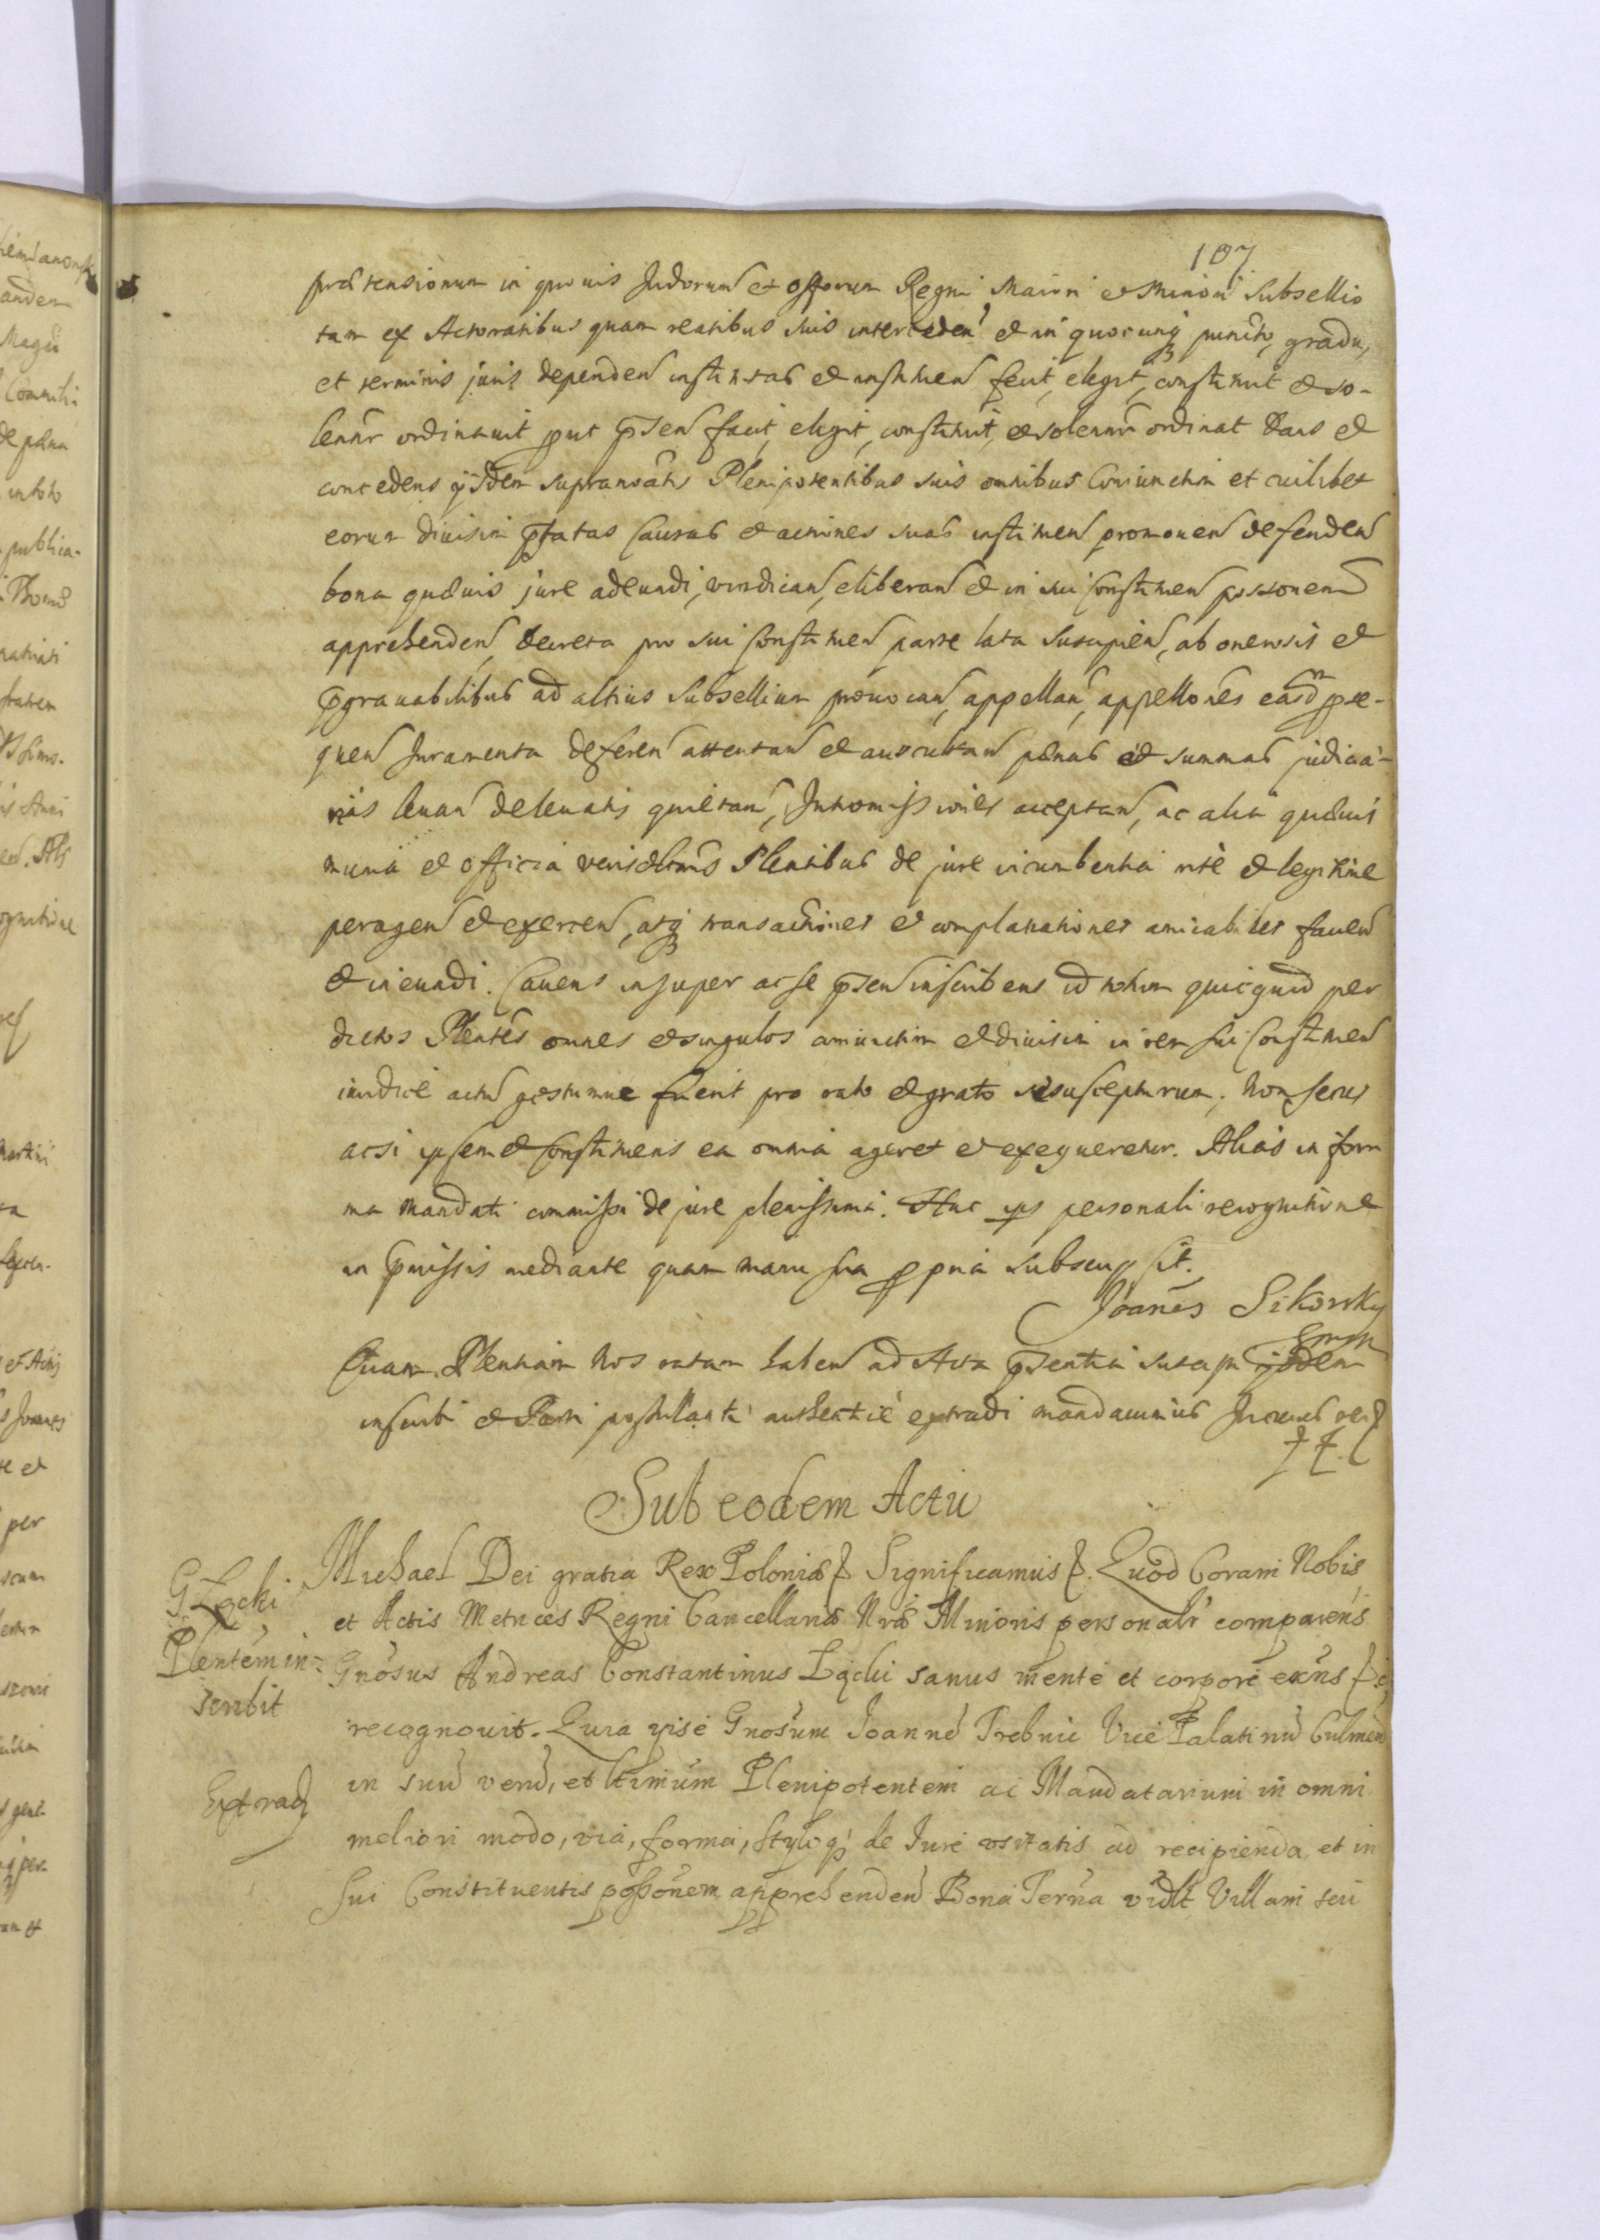 107
prætensionum in quouis Judiorum et offorum Regni Maiori et Minori Subsellio
tam ex Actoratibus quam reatibus suis interceden et in quocunq puncto, gradu,
et terminis juris dependen institutas et instituen fecit, elegit, constituit et so-
lenr ordinauit put psen facit, elegit, constituit, et solenr ordinat Dans et
concedens ijsdem supranoatis Plenipotentibus suis omnibus coniunctim et cuilibet
eorum diuisim pfatas Causas et actiones suas instituen promouen defenden
bona quæuis jure adeundi, vindican, eliberan et in sui Constituen possonem
apprehenden, Decreta pro sui Constituen parte lata suscipien, ab onerosis et
pgrauabilibus ad altius Subsellium prouocan, appellan, appellones easdm pse-
quen Juramenta deferen attentan et auscultan pænas et summas judicia-
rias leuan de leuatis quietan, Intromissiones acceptan, ac alia quæuis
munia et officia veris Plentibus de jure incumbentia rite et legitime
peragen et exercen, atq transactiones et complanationes amicabiles facien
et ineundi. Cauens insuper ac se psen inscribens id totum quicquid per
dictos Plentes omnes et singulos coniunctim et diuisim in rem sui Constituen
iuridice actu gestumue fuerit pro rato et grato se suscepturum, non secus
ac si ipsemet Constituens ea omnia ageret et exequeretur. Alias in for
ma Mandati commissi de jure plenissima. Hac ips personali recognitione
in pmissis mediante quam manu sua ppria subscripsit.
Joanes Sikorsky
Quam Plentiam Nos ratam haben ad Acta psentia suscipi ijsdem
inscribi et Parti postulanti authentice extradi mandauimus
Sub eodem Actu
G Łącki
Plentem in-
scribit
Extrad
Michael Dei gratia Rex Poloniæ Significamus. Quod Coram Nobis
et Actis Metrices Regni Cancellariæ Nræ Minoris personalr comparens
Gnosus Andreas Constantinus Łącki sanus mente et corpore exns
recognouit. Quia ipse Gnosum Joannem Trebnic Vice Palatinu Culmen
in suu veru, et ltimum Plenipotentem ac Mandatarium in omni
meliori modo, via, forma, styloq de Jure usitatis ad recipienda et in
sui Constituentis possonem apprehenden Bona Terrna vidlt Villam seu